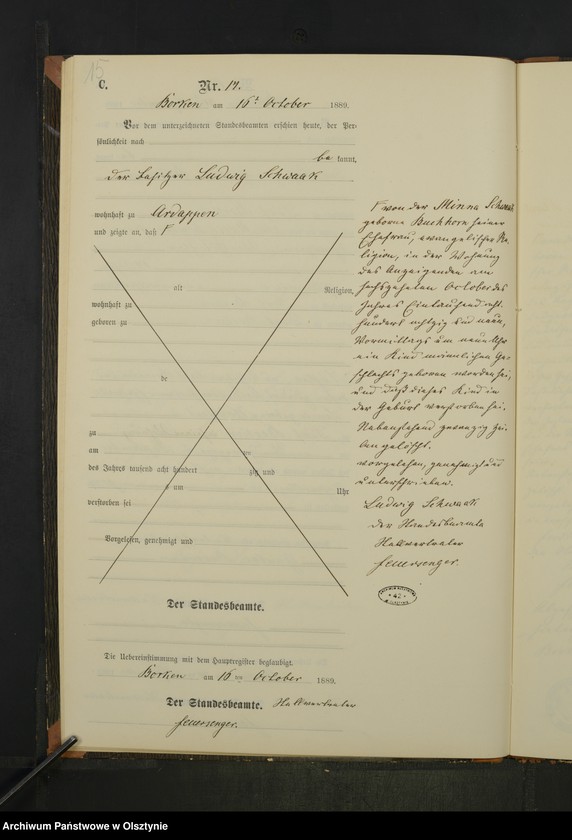 15
C.
Nr. 14.
Borken am 16ᵗ October 1889.
Vor dem unterzeichneten Standesbeamten erschien heute, der Per-
sönlichkeit nach
be kannt,
der Besitzer Ludwig Schwaak
wohnhaft zu Ardappen
und zeigte an, daß Γ
alt Religion,
wohnhaft zu
geboren zu
de
zu
am ten
des Jahres tausend acht hundert zig und
um Uhr
verstorben sei
Vorgelesen, genehmigt und
Γ von der Minna Schwaak
geborne Buchhorn seiner
Ehefrau, evangelischer Re-
ligion, in der Wohnung
des Anzeigenden am
sechszehnten October des
Jahres Eintausend acht-
hundert achtzig und neun,
Vormittags um neun Uhr
ein Kind männlichen Ge-
schlechts geboren worden sei,
und daß dieses Kind in
der Geburt verstorben sei.
Nebenstehend zwanzig Zei-
len gelöscht.
vorgelesen, genehmigt und
unterschrieben.
Ludwig Schwaak
der Standesbeamte
Stellvertreter
Feuersenger.
42
Der Standesbeamte.
Die Uebereinstimmung mit dem Hauptregister beglaubigt.
Borken am 16 ten October 1889.
Der Standesbeamte. Stellvertreter
Feuersenger.
Archiwum Państwowe w Olsztynie